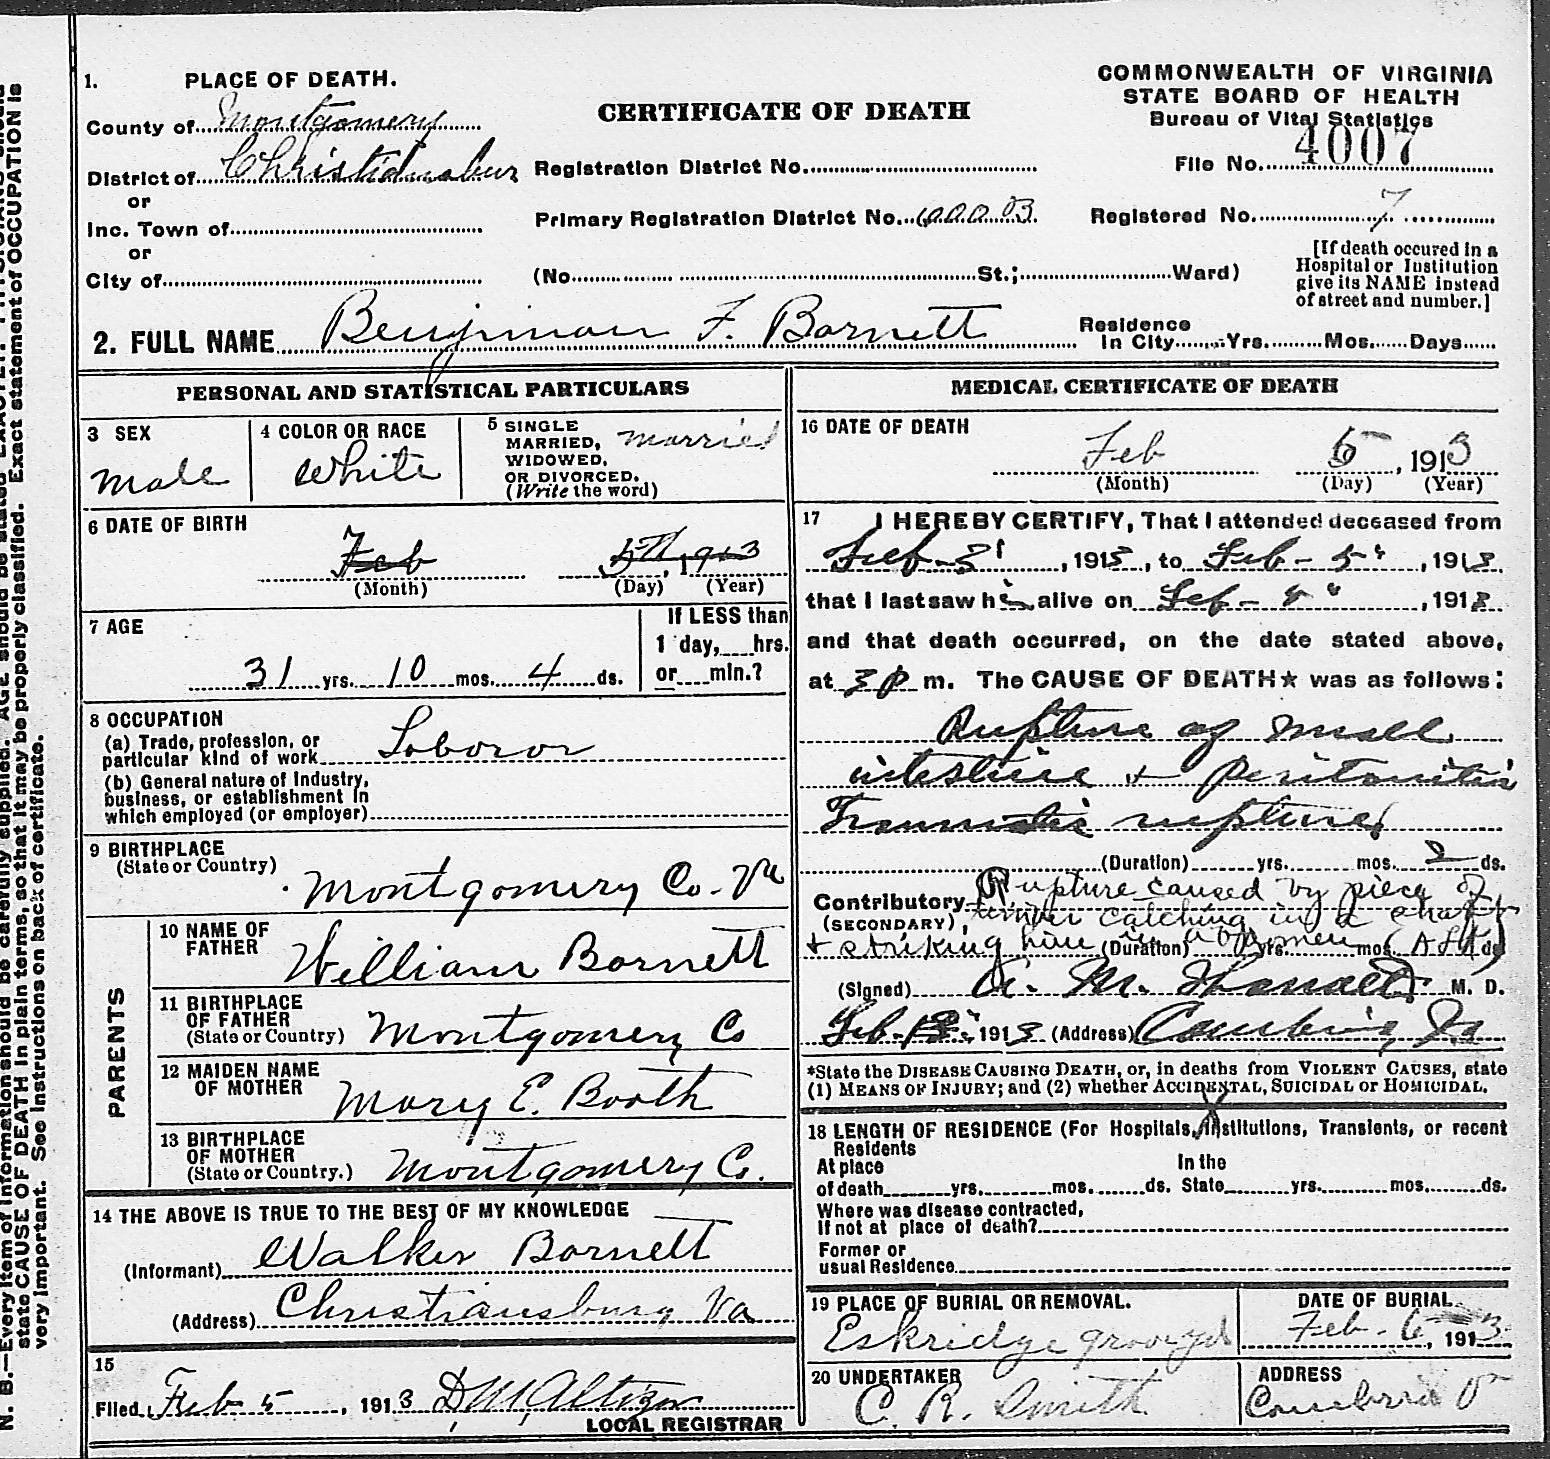 1. PLACE OF DEATH.
County of Montgomery
District of Christiansburg
or
Inc. Town of
or
City of
CERTIFICATE OF DEATH
Registration District No.
Primary Registration District No.
(No. St.; Ward)
COMMONWEALTH OF VIRGINIA
STATE BOARD OF HEALTH
Bureau of Vital Statistics
File No. 4007
Registered No. 7
[If death occured in a
Hospital or Institution
give its NAME instead
of street and number.]
2. FULL NAME Benjiman F. Barnett
Residence
In City Yrs. Mos. Days
PERSONAL AND STATISTICAL PARTICULARS
3 SEX
male
4 COLOR OR RACE
White
5 SINGLE
MARRIED, married
WIDOWED,
OR DIVORCED.
(Write the word)
6 DATE OF BIRTH
Feb 5th, 1913
(Month) (Day) (Year)
7 AGE
31 yrs. 10 mos. 4 ds.
If LESS than
1 day, hrs.
or min.?
8 OCCUPATION
(a) Trade, profession, or
particular kind of work Laboror
(b) General nature of Industry,
business, or establishment in
which employed (or employer)
9 BIRTHPLACE
(State or Country) Montgomery Co. Va
PARENTS
10 NAME OF
FATHER William Barnett
11 BIRTHPLACE
OF FATHER
(State or Country) Montgomery Co
12 MAIDEN NAME
OF MOTHER Mary E. Booth
13 BIRTHPLACE
OF MOTHER
(State or Country.) Montgomery C.
14 THE ABOVE IS TRUE TO THE BEST OF MY KNOWLEDGE
(Informant) Walker Barnett
(Address) Christiansburg Va
15
Filed Feb 5, 1913 D. M. Altizer
LOCAL REGISTRAR
MEDICAL CERTIFICATE OF DEATH
16 DATE OF DEATH
Feb 5, 1913
(Month) (Day) (Year)
17 I HEREBY CERTIFY, That I attended deceased from
Feb - 3", 1913, to Feb - 5", 1913.
that I last saw him alive on Feb - 5", 1913
and that death occurred, on the date stated above,
at 3 p m. The CAUSE OF DEATH* was as follows:
Rupture of small
intestine + Peritonitis
Traumatic rupture
(Duration) yrs. mos. 2 ds.
Contributory Rupture caused by piece of
(SECONDARY) timber catching in a shaft
+ striking him in abdomen (Duration) yrs. mos. ds.
(Signed) A. M. M. D.
Feb. 1913 (Address) Cambria, Va
*State the DISEASE CAUSING DEATH, or, in deaths from VIOLENT CAUSES, state
(1) MEANS OF INJURY; and (2) whether ACCIDENTAL, SUICIDAL or HOMICIDAL.
18 LENGTH OF RESIDENCE (For Hospitals, Institutions, Transients, or recent
Residents
At place In the
of death yrs. mos. ds. State yrs. mos. ds.
Where was disease contracted,
If not at place of death?
Former or
usual Residence
19 PLACE OF BURIAL OR REMOVAL.
Eskridge graveyd
DATE OF BURIAL
Feb - 6, 1913
20 UNDERTAKER
C. R. Smith
ADDRESS
Cambria V
N. B.—Every item of information should be carefully supplied. AGE should be stated EXACTLY.
state CAUSE OF DEATH in plain terms, so that it may be properly classified. Exact statement of OCCUPATION is
very important. See instructions on back of certificate.